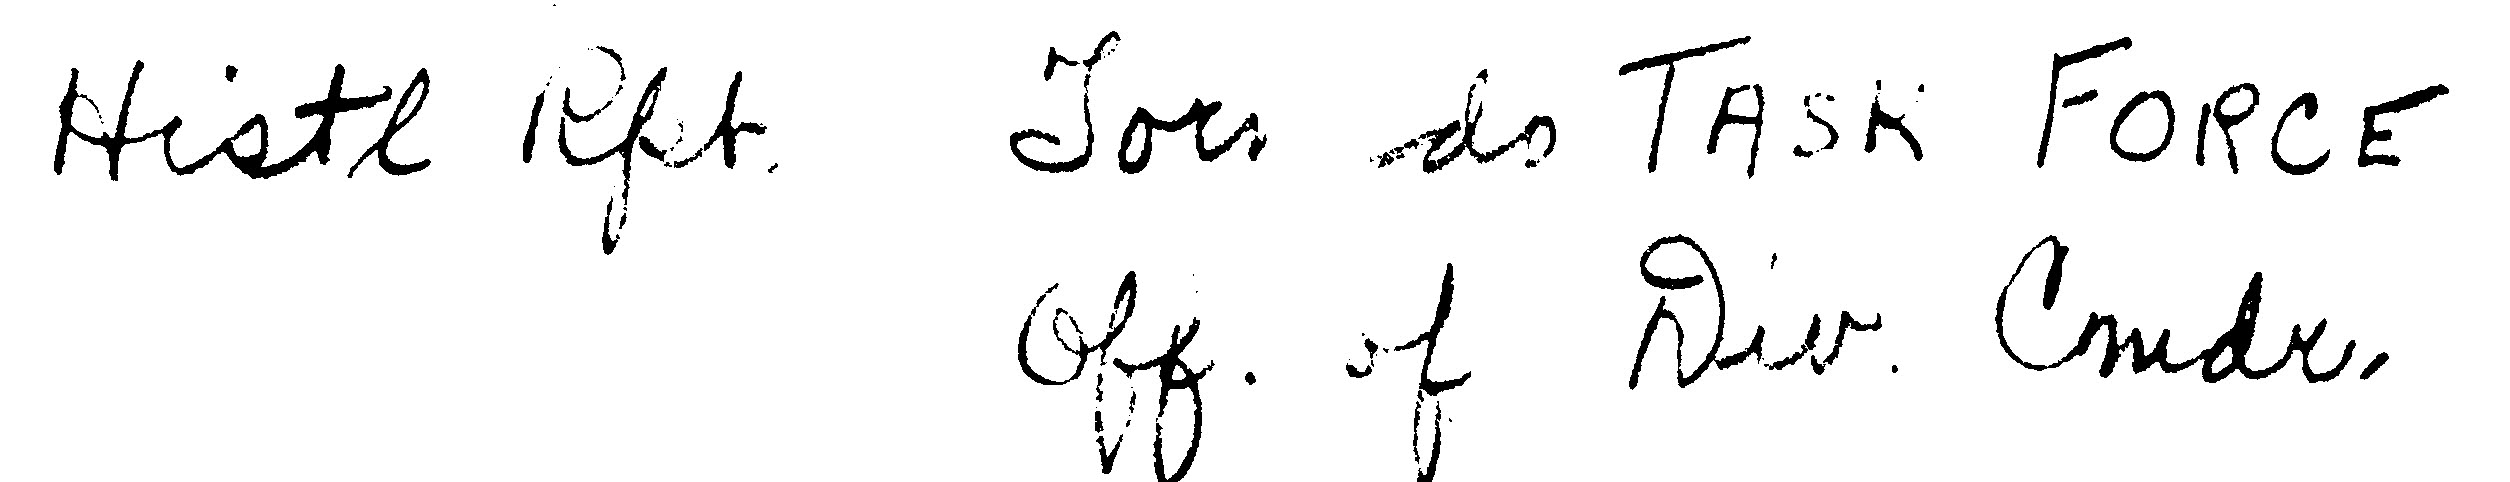 Histl Rpt. Tornado TASK FORCE
Off. of Div. Cmdr.